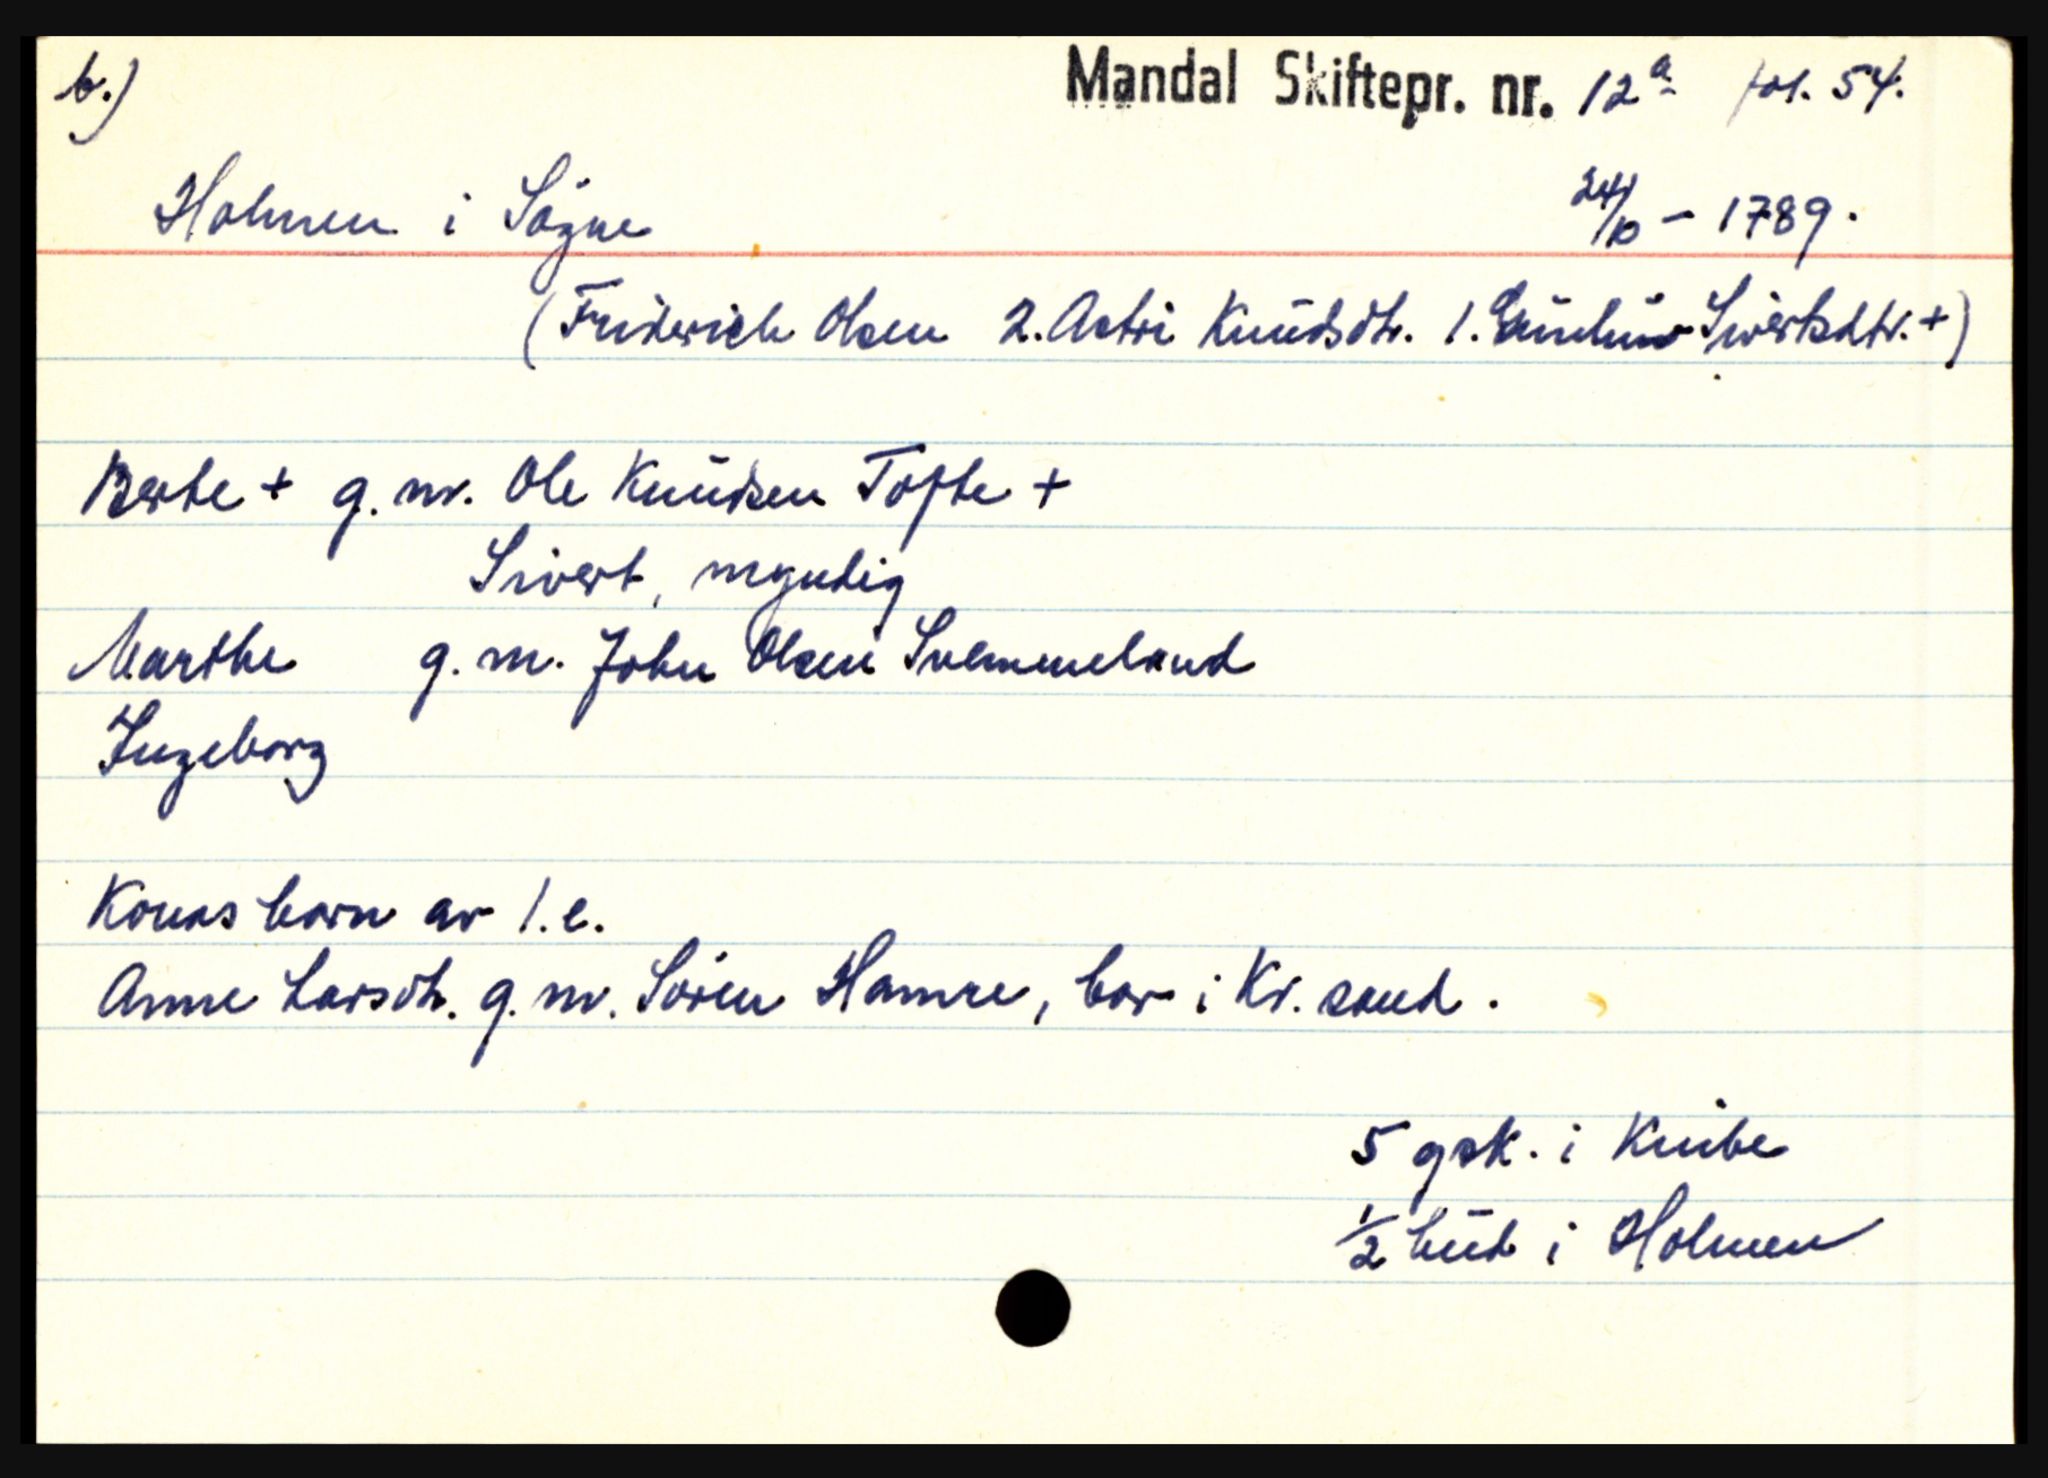 b.) Mandal Skiftepr. nr. 12a fol. 54.
Holmen i Søgne 24/10 - 1789.
(Friderich Olsen 2. Astri Knudsdtr. 1. Gunhu Siwertsdtr. +)
Berte + g. m. Ole Knudsen Tofte +
Sivert, myndig
Marthe g. m. John Olsen Svemmeland
Ingeborg
Konas born av 1. e.
Anne Larsdtr. g. m. Søren Hamre, bor i Kr. sand.
5 gsk. i Knibe
1/2 hud i Holmen